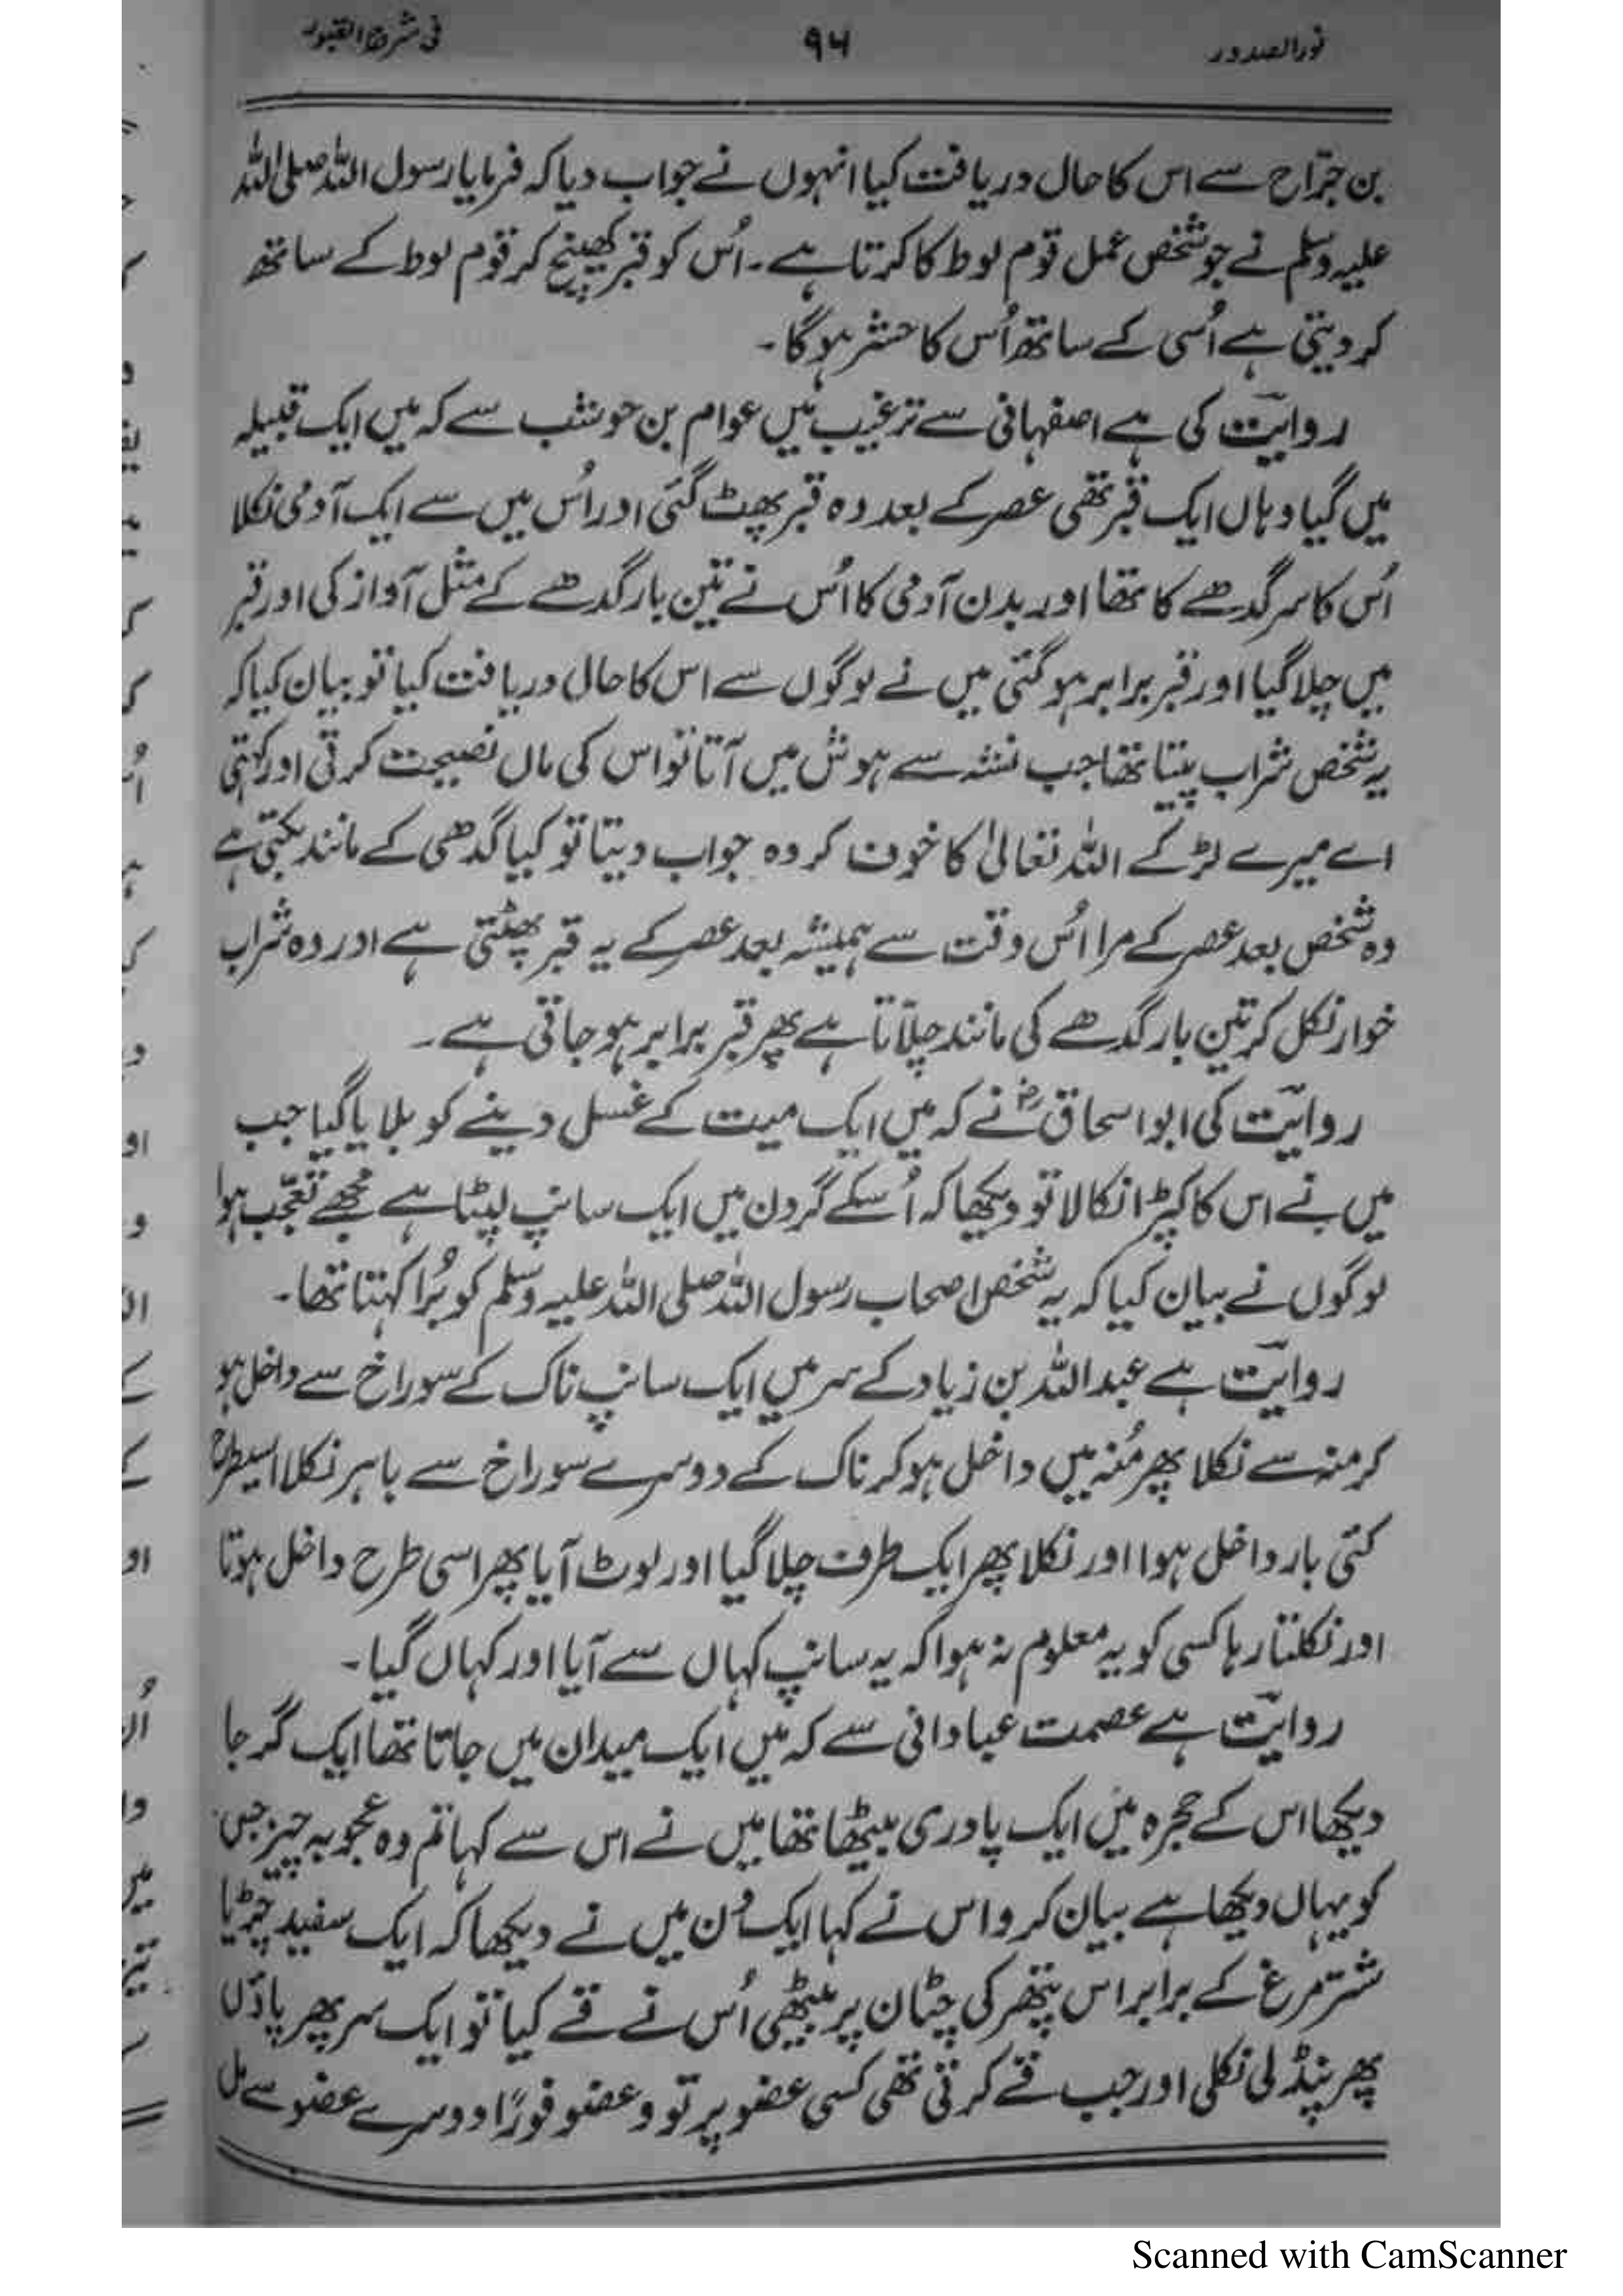 نورالصدور ۹۴ فی شرح القبور
بن جرّاح سے اس کا حال دریافت کیا انہوں نے جواب دیا کہ فرمایا رسول اللہ صلی اللہ
علیہ وسلم نے جو شخص عمل قوم لوط کا کرتا ہے ۔ اُس کو قبر کھینچ کر قوم لوط کے ساتھ
کر دیتی ہے اُسی کے ساتھ اُس کا حشر ہو گا ۔
روایت کی ہے اصفہانی سے ترغیب میں عوام بن حوشب سے کہ میں ایک قبیلہ
میں گیا وہاں ایک قبر تھی عصر کے بعد وہ قبر پھٹ گئی اور اُس میں سے ایک آدمی نکلا
اُس کا سر گدھے کا تھا اور بدن آدمی کا اُس نے تین بار گدھے کے مثل آواز کی اور قبر
میں چلا گیا اور قبر برابر ہو گئی میں نے لوگوں سے اس کا حال دریافت کیا تو بیان کیا کہ
یہ شخص شراب پیتا تھا جب نشہ سے ہوش میں آتا تو اس کی ماں نصیحت کرتی اور کہتی
اے میرے لڑکے اللہ تعالیٰ کا خوف کر وہ جواب دیتا تو کیا گدھی کے مانند بکتی ہے
وہ شخص بعد عصر کے مرا اُس وقت سے ہمیشہ بعد عصر کے یہ قبر پھٹتی ہے اور وہ شراب
خوار نکل کر تین بار گدھے کی مانند چلّاتا ہے پھر قبر برابر ہو جاتی ہے ۔
روایت کی ابو اسحاق رح نے کہ میں ایک میت کے غسل دینے کو بلایا گیا جب
میں نے اس کا کپڑا نکالا تو دیکھا کہ اُسکے گردن میں ایک سانپ لپٹا ہے مجھے تعجّب ہوا
لوگوں نے بیان کیا کہ یہ شخص اصحاب رسول اللہ صلی اللہ علیہ وسلم کو بُرا کہتا تھا ۔
روایت ہے عبد اللہ بن زیاد کے سر میں ایک سانپ ناک کے سوراخ سے داخل ہو
کر منہ سے نکلا پھر مُنہ میں داخل ہو کر ناک کے دوسرے سوراخ سے باہر نکلا اسیطرح
کئی بار داخل ہوا اور نکلا پھر ایک طرف چلا گیا اور لوٹ آیا پھر اسی طرح داخل ہوتا
اور نکلتا رہا کسی کو یہ معلوم نہ ہوا کہ یہ سانپ کہاں سے آیا اور کہاں گیا ۔
روایت ہے عصمت عبادانی سے کہ میں ایک میدان میں جاتا تھا ایک گرجا
دیکھا اس کے حجرہ میں ایک پادری بیٹھا تھا میں نے اس سے کہا تم وہ عجوبہ چیز جس
کو یہاں دیکھا ہے بیان کرو اس نے کہا ایک دن میں نے دیکھا کہ ایک سفید چڑیا
شتر مرغ کے برابر اس پتھر کی چٹان پر بیٹھی اُس نے قے کیا تو ایک سر پھر پاؤں
پھر پنڈلی نکلی اور جب قے کرتی تھی کسی عضو پر تو وعضو فورًا دوسرے عضو سے مل
Scanned with CamScanner